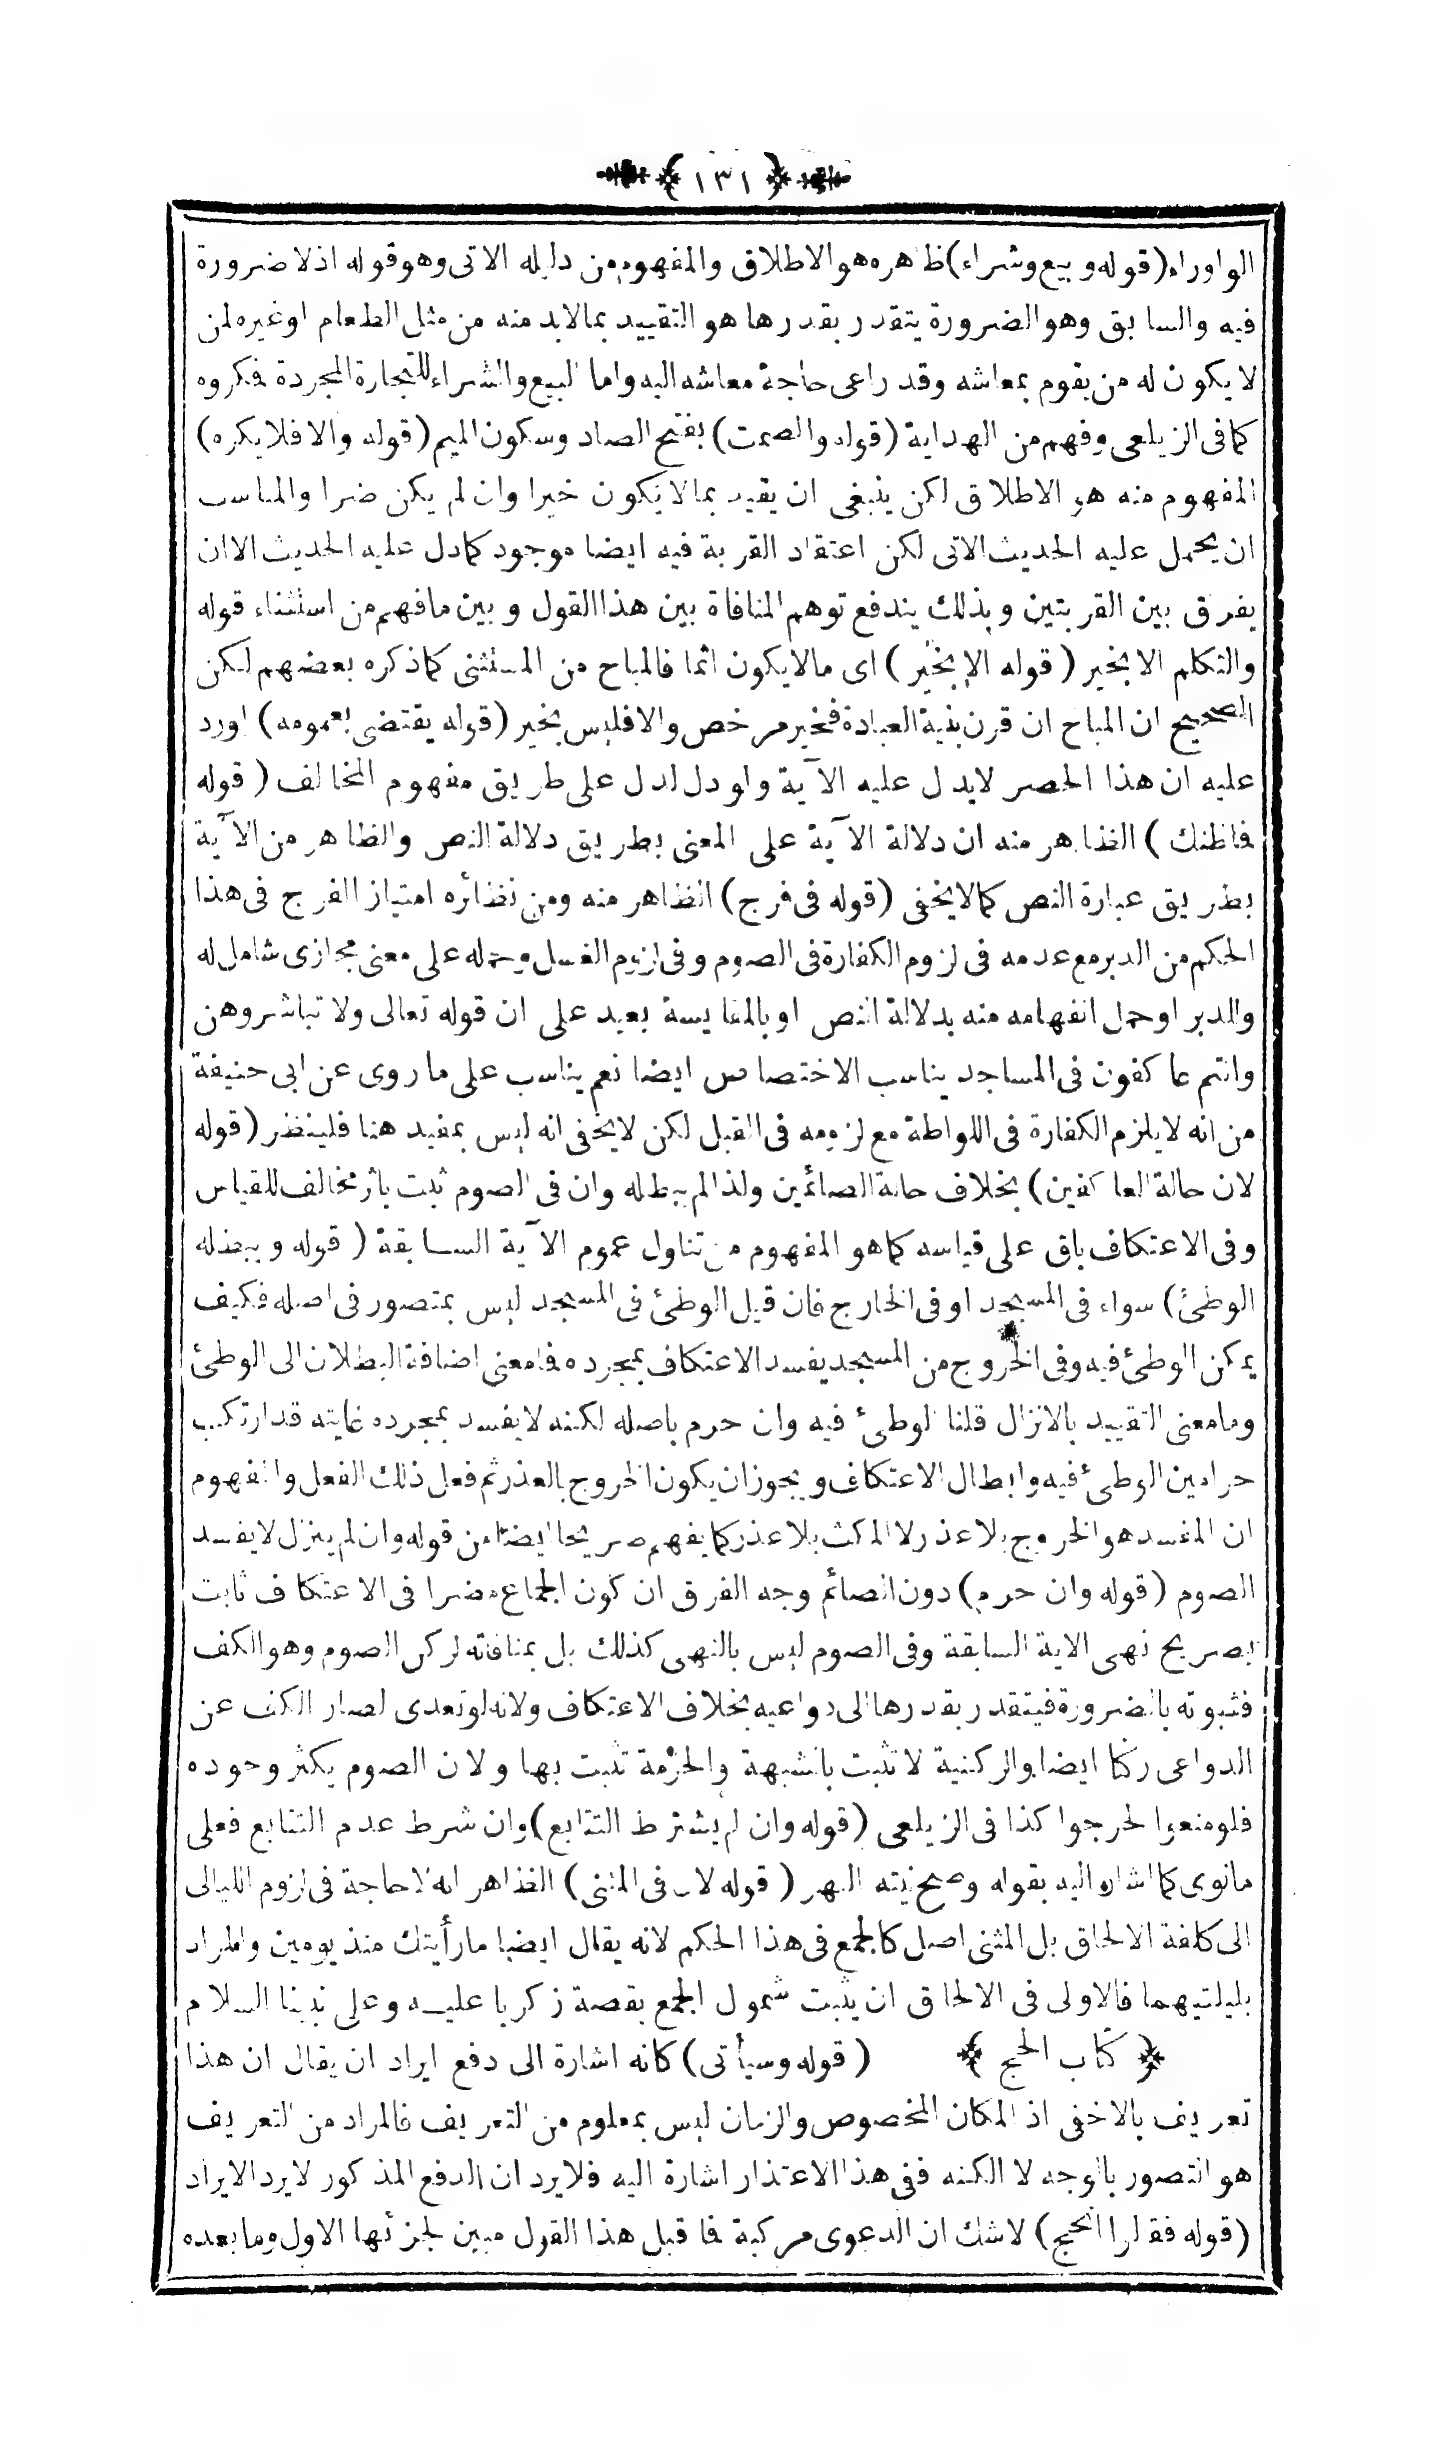 ﴿ ١٣١ ﴾
الواوراه (قوله وبيع وشراء) ظاهره هو الاطلاق والمفهوم من دليله الاتى وهو قوله اذلا ضرورة
فيه والسابق وهو الضرورة يتقدر بقدرها هو التقييد بمالابد منه من مثل الطعام اوغيره لمن
لا يكون له من يقوم بمعاشه وقد راعى حاجة معاشه اليه واما البيع والشراء للتجارة المجردة فكروه
كما فى الزيلعى وفهم من الهداية (قوله والصمت) بفتح الصاد وسكون الميم (قوله والا فلا يكره)
المفهوم منه هو الاطلاق لكن ينبغى ان يقيد بما لا يكون خيرا وان لم يكن ضرا والمناسب
ان يحمل عليه الحديث الاتى لكن اعتقاد القربة فيه ايضا موجود كمادل عليه الحديث الاان
يفرق بين القربتين وبذلك يندفع توهم المنافاة بين هذا القول وبين مافهم من استثناء قوله
والتكلم الا بخير (قوله الا بخير) اى مالا يكون اثما فالمباح من المستثنى كماذكره بعضهم لكن
الصحيح ان المباح ان قرن بنية العبادة فخير مرخص والا فليس بخير (قوله يقتضى بعمومه) اورد
عليه ان هذا الحصر لايدل عليه الآية ولو دل لدل على طريق مفهوم المخالف (قوله
فاظنك) الظاهر منه ان دلالة الآية على المعنى بطريق دلالة النص والظاهر من الآية
بطريق عبارة النص كمالا يخفى (قوله فى فرج) الظاهر منه ومن نظائره امتياز الفرج فى هذا
الحكم من الدبر مع عدمه فى لزوم الكفارة فى الصوم وفى لزوم الغسل وحمله على معنى مجازى شامل له
والدبر اوحمل انفهامه منه بدلالة النص او بالمقايسة بعيد على ان قوله تعالى ولا تباشروهن
وانتم عاكفون فى المساجد يناسب الاختصاص ايضا نعم يناسب على ماروى عن ابى حنيفة
من انه لا يلزم الكفارة فى اللواطة مع لزومه فى القبل لكن لا يخفى انه ليس بمفيد هنا فلينظر (قوله
لان حالة العاكفين) بخلاف حالة الصائمين ولذا لم يبطله وان فى الصوم ثبت باثر مخالف للقياس
وفى الاعتكاف باق على قياسه كماهو المفهوم من تناول عموم الآية السابقة (قوله ويبطله
الوطئ) سواء فى المسجد اوفى الخارج فان قيل الوطئ فى المسجد ليس بمتصور فى اصله فكيف
يمكن الوطئ فيه وفى الخروج من المسجد يفسد الاعتكاف بمجرده فامعنى اضافة البطلان الى الوطئ
ومامعنى التقييد بالانزال قلنا الوطئ فيه وان حرم باصله لكنه لا يفسد بمجرده غايته قد ارتكب
حرامين الوطئ فيه وابطال الاعتكاف ويجوز ان يكون الخروج بالعذر ثم فعل ذلك الفعل والمفهوم
ان المفسد هو الخروج بلا عذر لا المكث بلا عذر كما يفهم صريحا ايضا من قوله وان لم ينزل لا يفسد
الصوم (قوله وان حرم) دون الصائم وجه الفرق ان كون الجماع مضرا فى الاعتكاف ثابت
بصريح نهى الاية السابقة وفى الصوم ليس بالنهى كذلك بل بمنافاته لركن الصوم وهو الكف
فثبوته بالضرورة فيتقدر بقدرها الى دواعيه بخلاف الاعتكاف ولانه لو تعدى لصار الكف عن
الدواعى ركنا ايضا والركنية لا تثبت بالشبهة والحرمة تثبت بها ولان الصوم يكثر وجوده
فلو منعوا لحرجوا كذا فى الزيلعى (قوله وان لم يشترط التتابع) وان شرط عدم التتابع فعلى
مانوى كما اشار اليه بقوله وصح نيته النهر (قوله لان فى المثنى) الظاهر انه لا حاجة فى لزوم الليالى
الى كلفة الالحاق بل المثنى اصل كالجمع فى هذا الحكم لانه يقال ايضا مارأيتك منذ يومين والمراد
بليلتيهما فالاولى فى الالحاق ان يثبت شمول الجمع بقصة زكريا عليه وعلى نبينا السلام
﴿ كتاب الحج ﴾ (قوله وسيأتى) كانه اشارة الى دفع ايراد ان يقال ان هذا
تعريف بالاخفى اذ المكان المخصوص والزمان ليس بمعلوم من التعريف فالمراد من التعريف
هو التصور بالوجه لا الكنه ففى هذا الاعتذار اشارة اليه فلا يرد ان الدفع المذكور لا يرد الايراد
(قوله فقالوا الحج) لاشك ان الدعوى مركبة فا قبل هذا القول مبين لجزئها الاول وما بعده